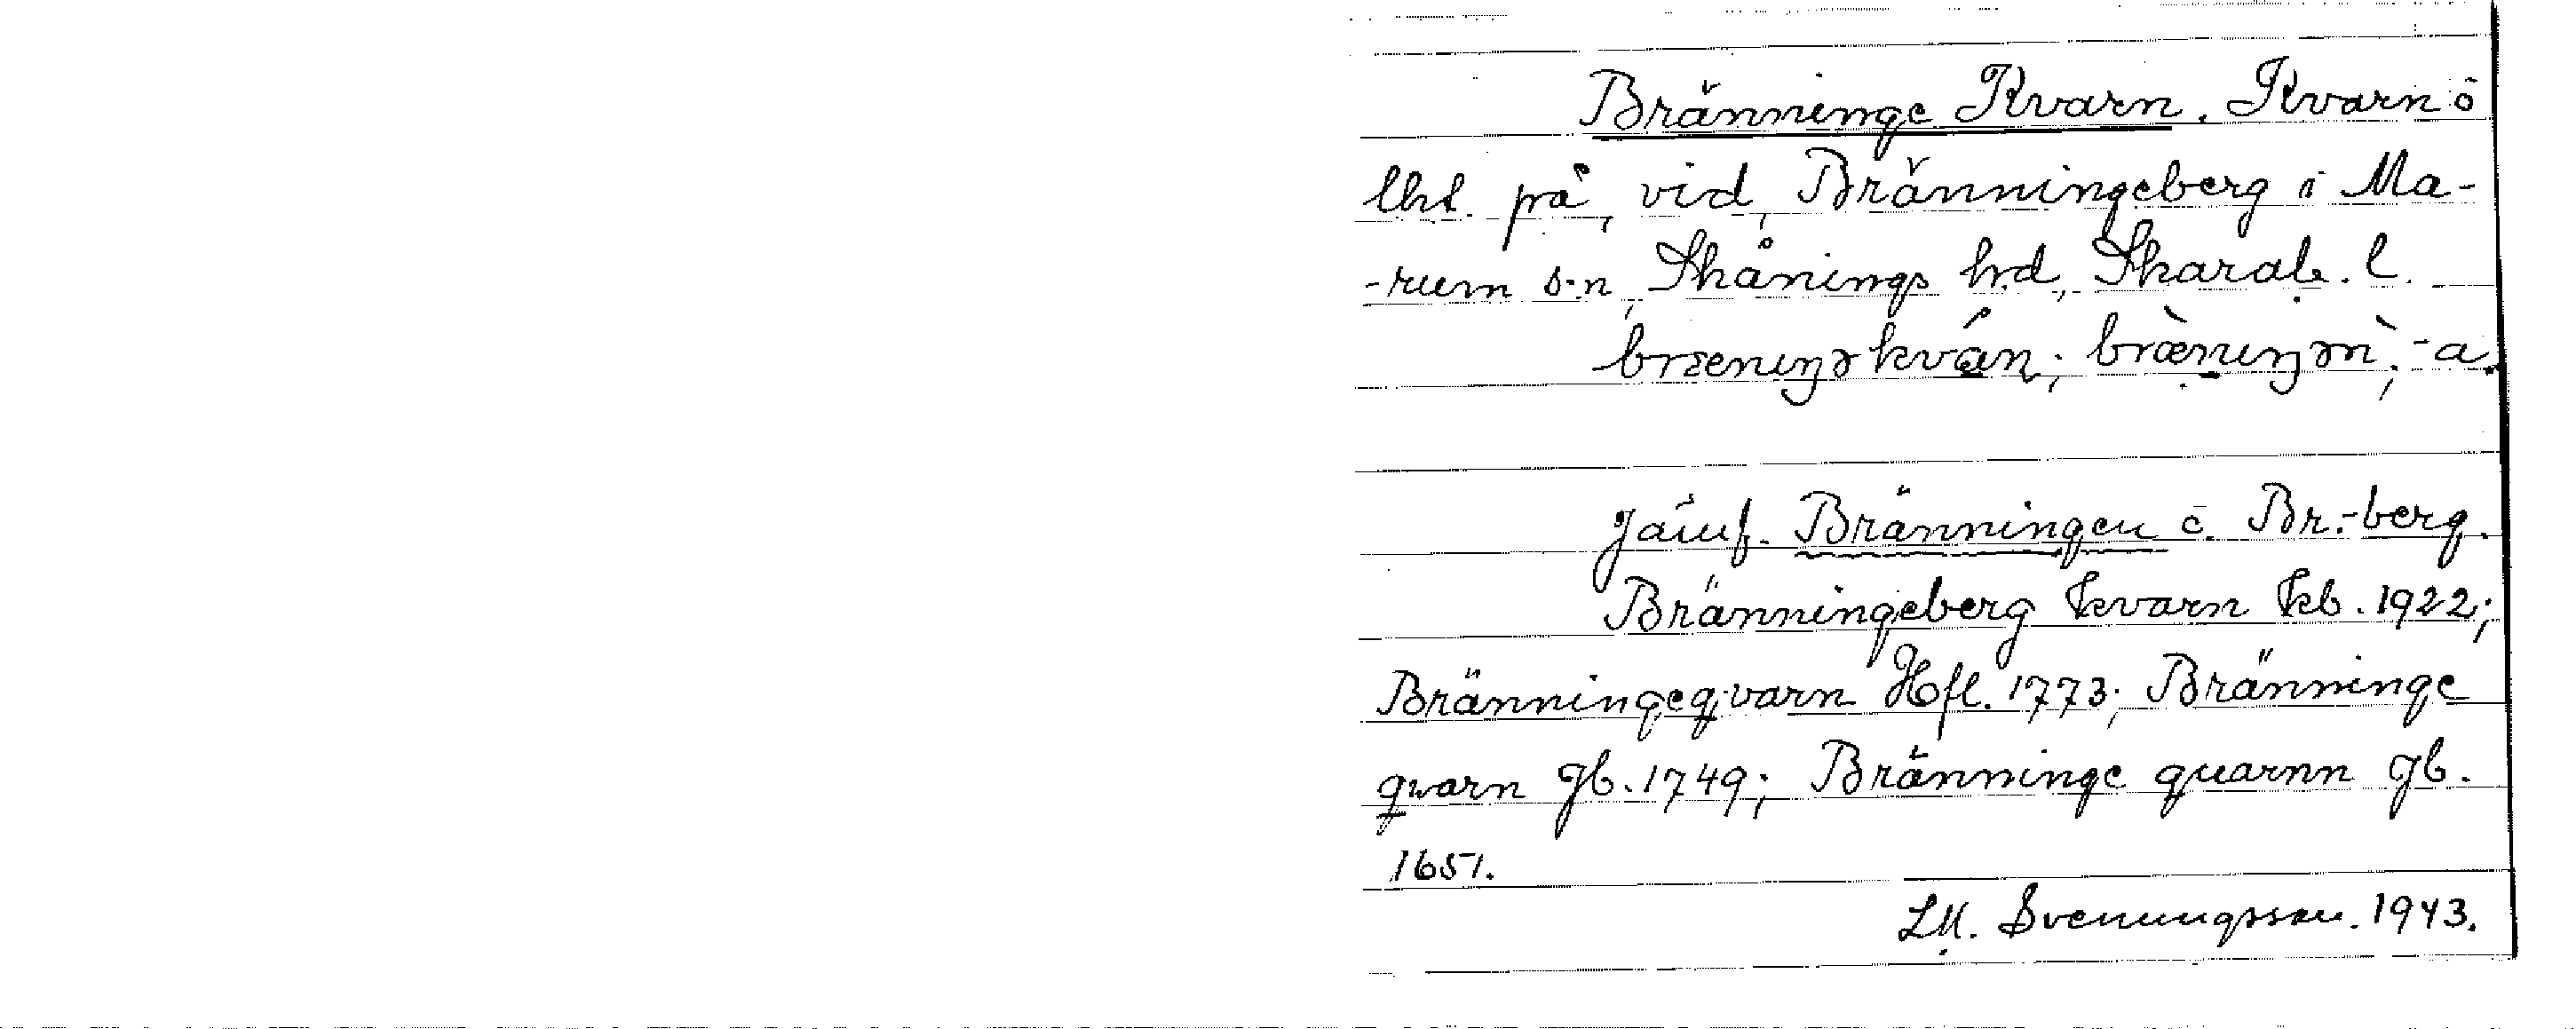 Bränninge Kvarn. Kvarn o
lht på, vid, Bränningeberg i Ma-
-rum s.n, Skånings hd, Skarab. l.
bræniŋəkván; bræ̀niŋən, -a.
Jämf. Bränningen o. Br.-berg.
Bränningeberg kvarn kb. 1922;
Bränningeqvarn Hfl. 1773; Bränninge
qvarn Jb. 1749; Bränninge quarnn Jb.
1651.
LM. Svenungsson. 1943.